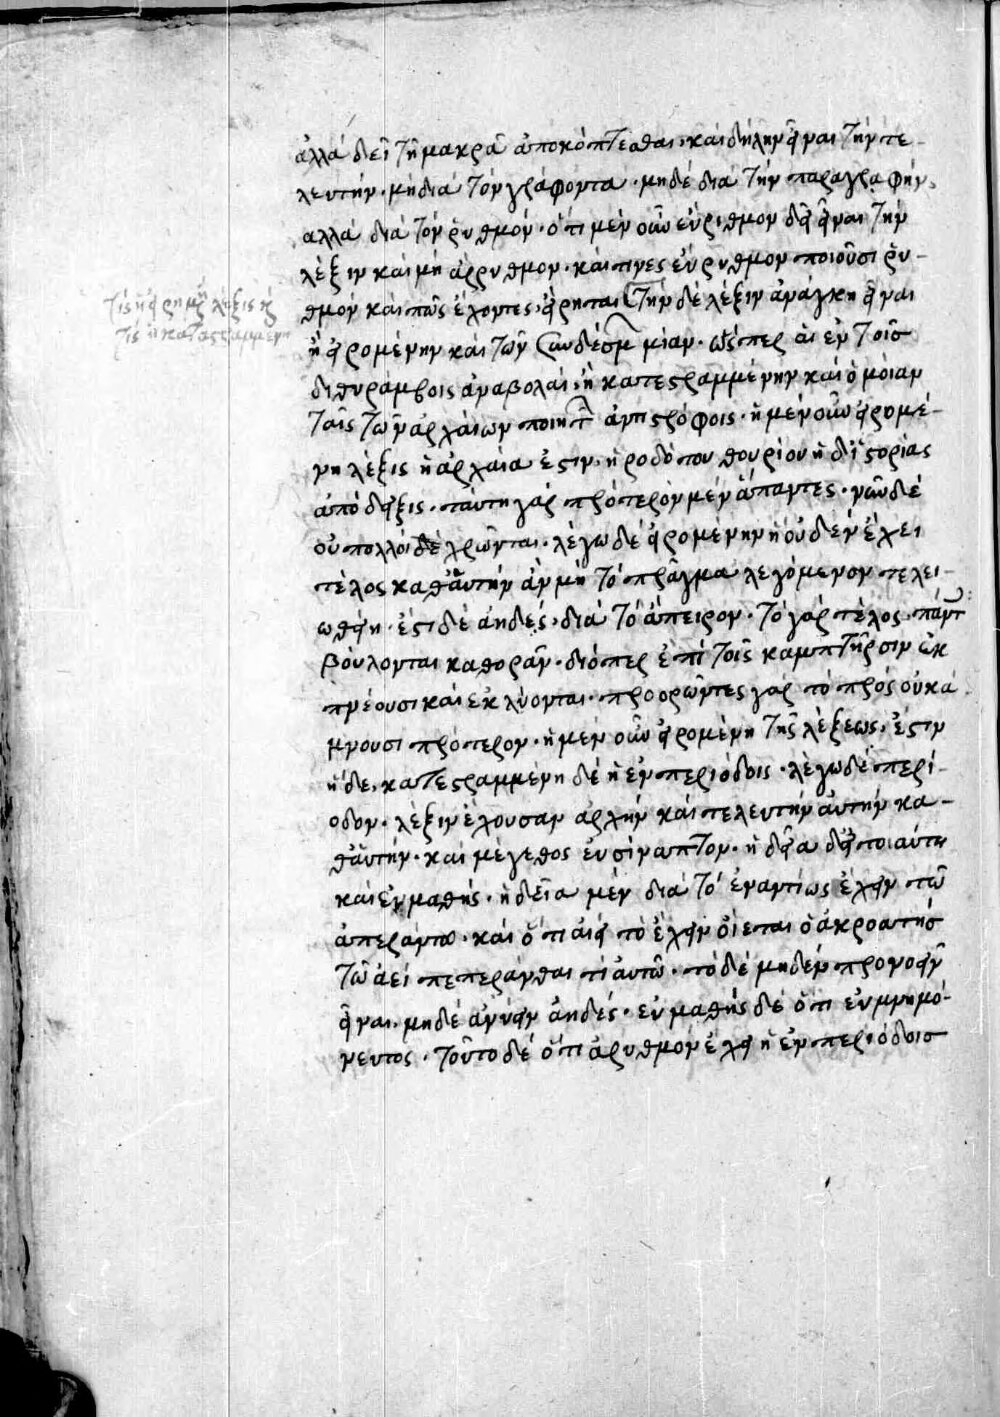 τίς ἡ εἰρημένη λέξις κ
τίς ἡ κατεστραμμένη
ἀλλὰ δεῖ τῆ μακρᾶ ἀποκόπτεσθαι, καὶ δήλην εἶναι τὴν τε-
λευτήν· μὴ διὰ τὸν γράφοντα· μηδὲ διὰ τὴν παραγραφήν,
ἀλλὰ διὰ τὸν ῥυθμόν· ὅτι μὲν οὖν εὔρυθμον δεῖ εἶναι τὴν
λέξιν καὶ μὴ ἄρρυθμον· καὶ τίνες εὔρυθμον ποιοῦσι ῥυ-
θμὸν καὶ πῶς ἔχοντες, εἴρηται (τὴν δὲ λέξιν ἀνάγκη εἶναι
ἢ εἰρομένην καὶ τῶν συνδέσμ μίαν· ὥσπερ αἱ ἐν τοῖς
διθυράμβοις ἀναβολαὶ, ἢ κατεστραμμένην καὶ ὁμοίαν
ταῖς τῶν ἀρχαίων ποιητ ἀντιστρόφοις· ἡ μὲν οὖν εἰρομέ-
νη λέξις ἡ ἀρχαία ἐστιν· ἡροδότου θουρίου ἡ δ' ἱστορίας
ἀπόδειξις· ταύτη γὰρ πρότερον μὲν ἅπαντες· νῦν δὲ
οὐ πολλοὶ δὲ χρῶνται· λέγω δὲ εἰρομένην ἣ οὐδὲν ἔχει
τέλος καθ' αὑτὴν ἂν μὴ τὸ πρᾶγμα λεγόμενον τελει-
ωθείη· ἔστι δὲ ἀηδὲς, διὰ τὸ ἄπειρον· τὸ γὰρ τέλος, πάντ
βούλονται καθορᾶν· διόπερ ἐπὶ τοῖς καμπτῆρσιν ἐκ
πνέουσι καὶ ἐκλύονται· προορῶντες γὰρ τὸ πρὸς οὐ κά
μνουσι πρότερον· ἡ μὲν οὖν εἰρομένη τῆς λέξεως, ἐστιν
ἥδε, κατεστραμμένη δὲ ἡ ἐν περιόδοις· λέγω δὲ περί-
οδον· λέξιν ἔχουσαν ἀρχὴν καὶ τελευτὴν αὐτὴν κα-
θ' αὑτήν· καὶ μέγεθος εὐσύναπτον· ἡδεῖα δ' ἡ τοιαύτη
καὶ εὐμαθής· ἡδεῖα μὲν διὰ τὸ ἐναντίως ἔχειν τῶ
ἀπεράντω· καὶ ὅτι ἀεί τὸ ἔχειν οἴεται ὁ ἀκροατὴς
τῶ ἀεὶ πεπεράνθαι τι αὐτῶ· τὸ δὲ μηδὲν προνοεῖν
εἶναι, μηδὲ ἀνύειν ἀηδές· εὐμαθὴς δὲ ὅτι εὐμνημό-
νευτος· τοῦτο δὲ ὅτι ἀρυθμὸν ἔχει ἡ ἐν περιόδοις